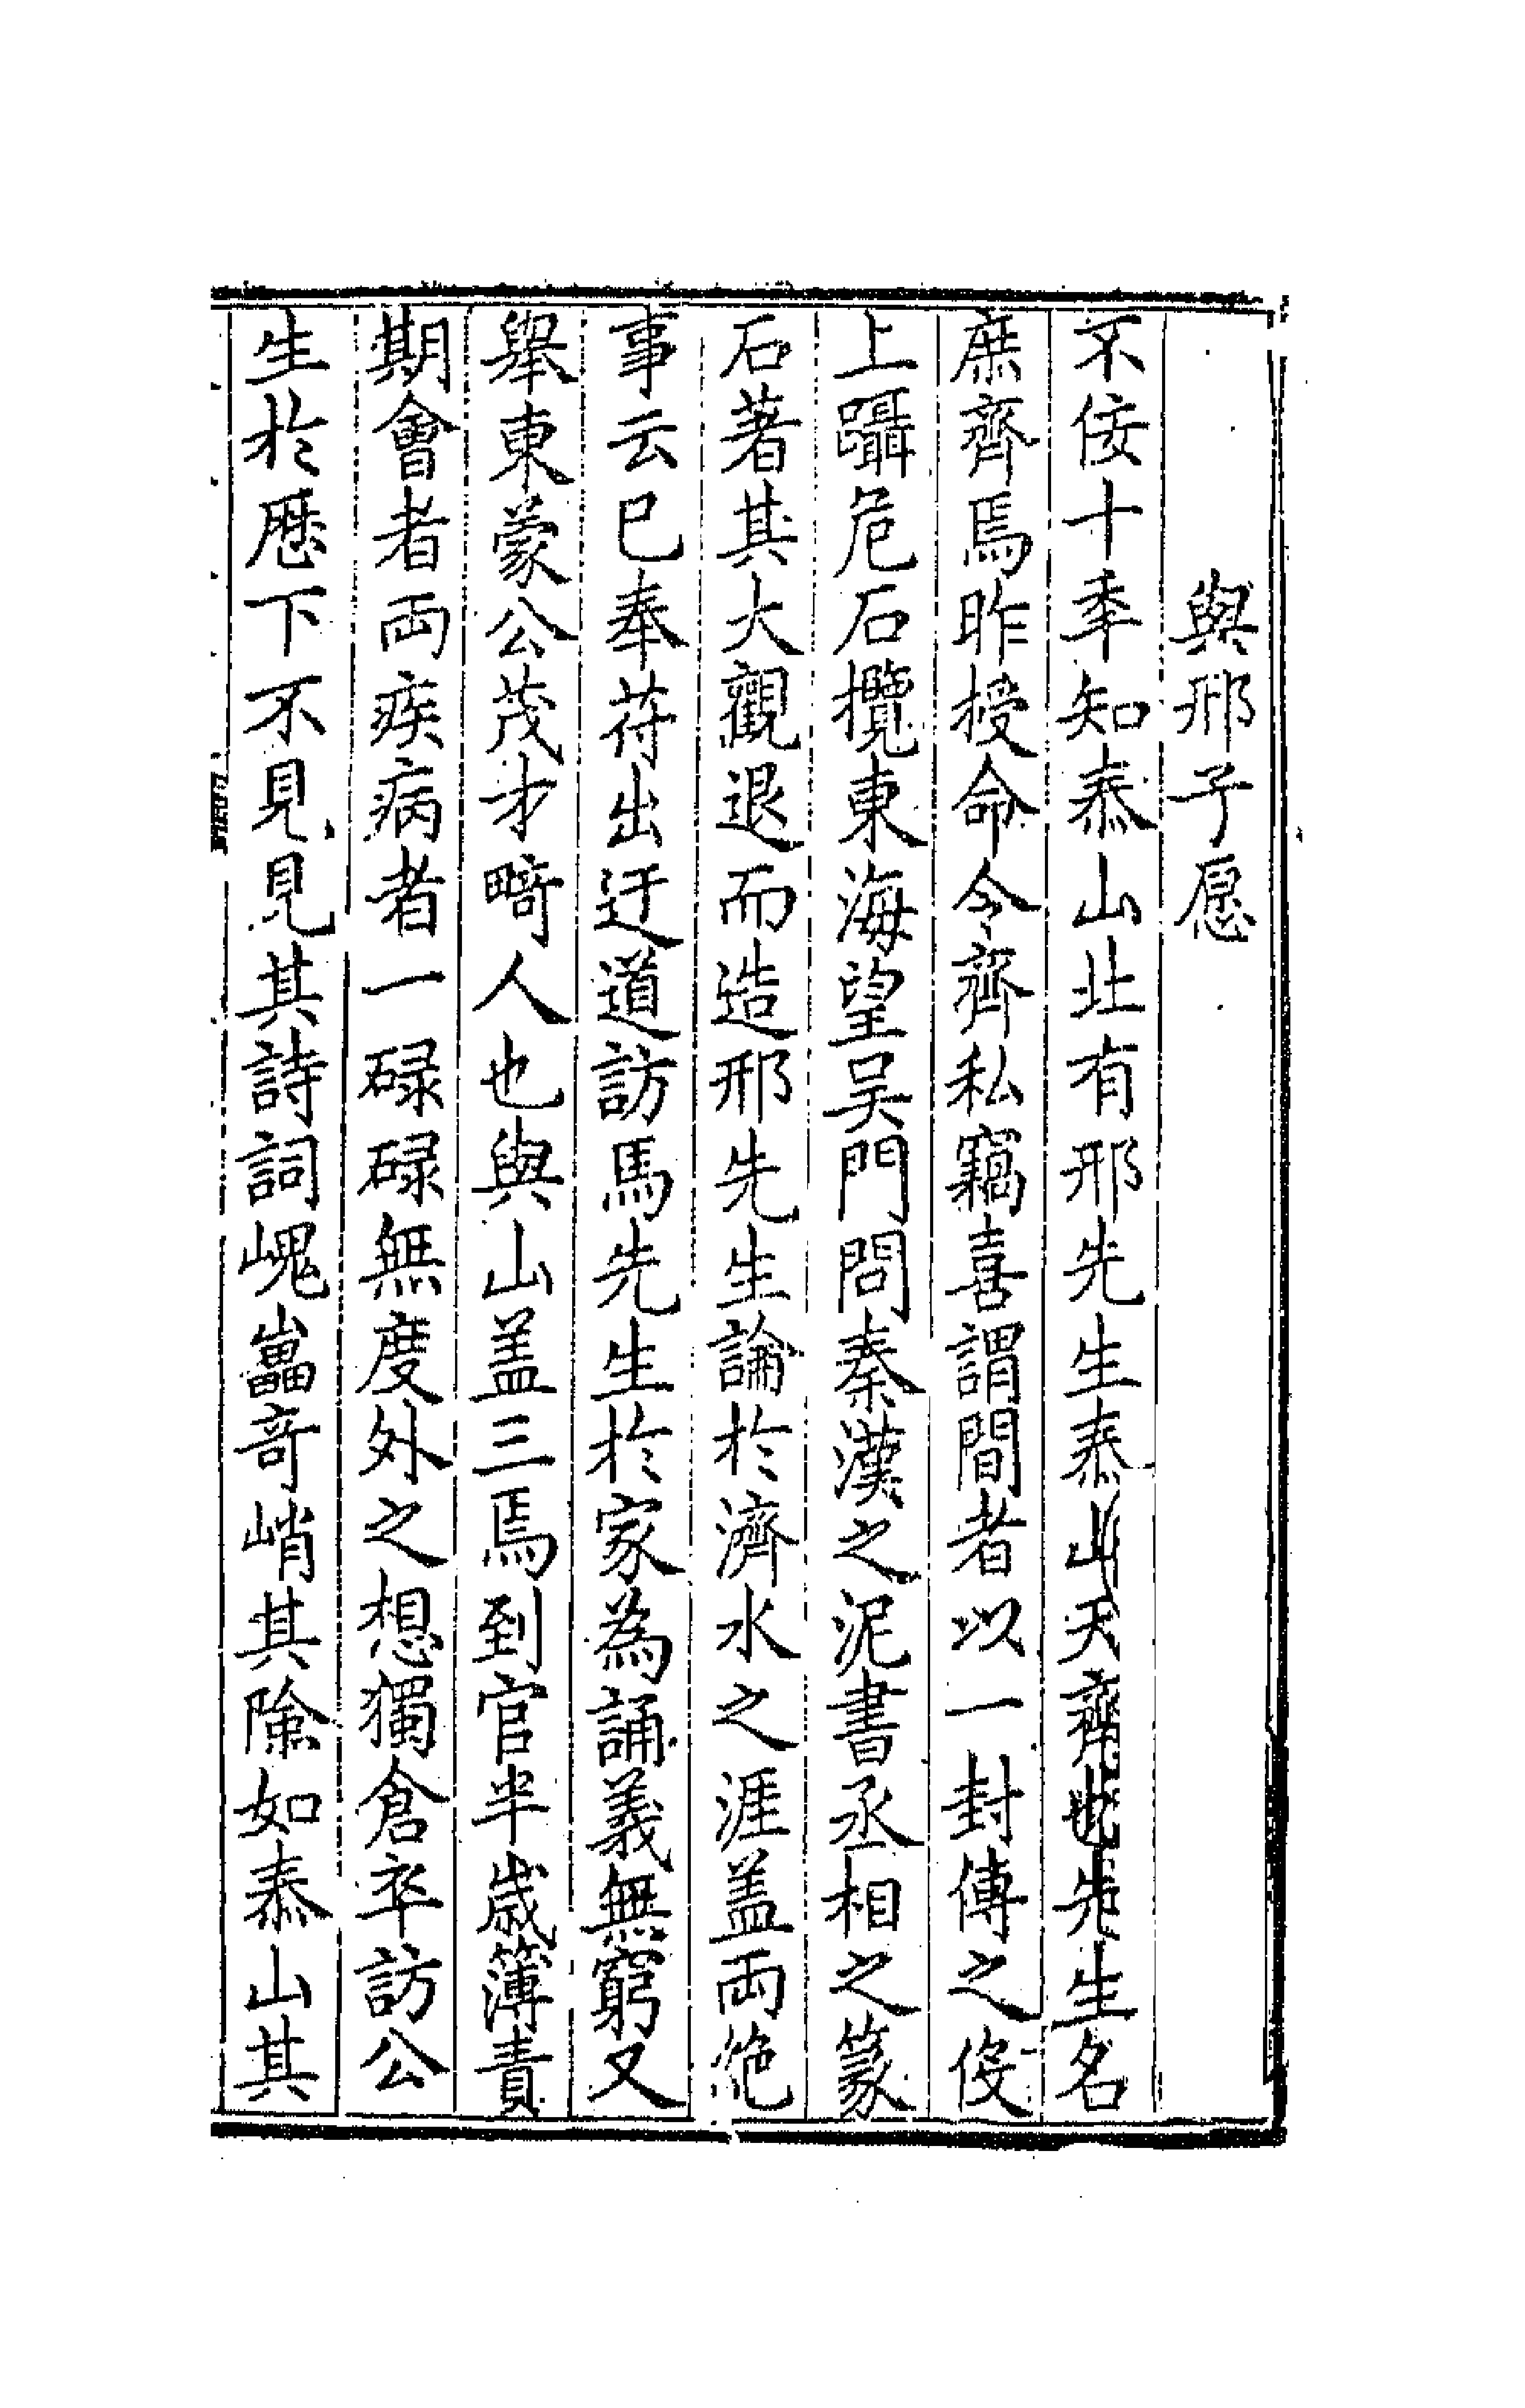 與邢子愿
不佞十年知泰山北有邢先生泰山天齊也先生名
庶齊焉昨授命令齊私竊喜謂間者以一封傳之佞
上躡危石攬東海望吳門問秦漢之泥書丞相之篆
石著其大觀退而造邢先生論於濟水之涯盖両絶
事云已奉苻出迂道訪馬先生於家為誦義無窮又
舉東蒙公茂才畸人也與山盖三焉到官半歲簿責
期會者両疾病者一碌碌無度外之想獨倉卒訪公
生於歷下不見見其詩詞嵬畾奇峭其險如泰山其